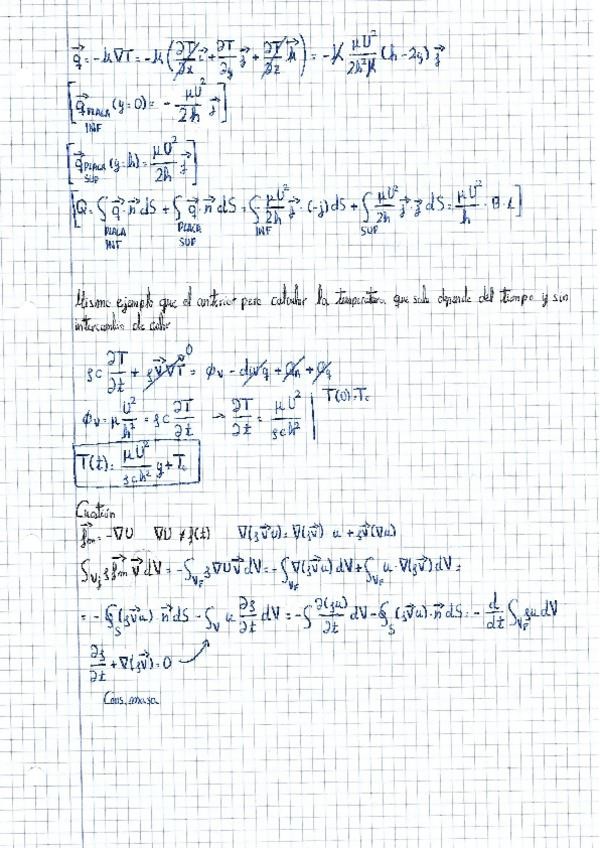 q⃗ = -k∇T = -k(∂T/∂x i⃗ + ∂T/∂y j⃗ + ∂T/∂z k⃗) = -k μU²/2h²k (h-2y) j⃗
[q⃗ PLACA INF (y=0) = - μU²/2h j⃗]
[q⃗ PLACA SUP (y=h) = μU²/2h j⃗]
[Q = ∫PLACA INF q⃗·n⃗ dS + ∫PLACA SUP q⃗·n⃗ dS = ∫INF μU²/2h j⃗·(-j)dS + ∫SUP μU²/2h j⃗·j⃗ dS = μU²/h · B·L]
Mismo ejemplo que el anterior pero calcular la temperatura que solo depende del tiempo y sin
intercambio de calor
ρc ∂T/∂t + ρv⃗∇T = ϕv - div q + Qn + Qq
0
ϕv = μ U²/h² = ρc ∂T/∂t → ∂T/∂t = μU²/ρch² | T(0)=T₀
T(t) = μU²/ρch² y + T₀
Cuestión
f⃗m = -∇U ∇U ≠ f(t) ∇(ρv⃗u) = ∇(ρv⃗) u + ρv⃗(∇u)
∫Vf ρf⃗m v⃗ dV = -∫Vf ρ∇U v⃗ dV = -∫Vf ∇(ρv⃗u) dV + ∫Vf u·∇(ρv⃗) dV =
= -∮S (ρv⃗u)·n⃗ dS - ∫V u ∂ρ/∂t dV = -∫ ∂(ρu)/∂t dV - ∮S (ρv⃗u)·n⃗ dS = - d/dt ∫Vf ρu dV
∂ρ/∂t + ∇(ρv⃗) = 0
Cons. masa